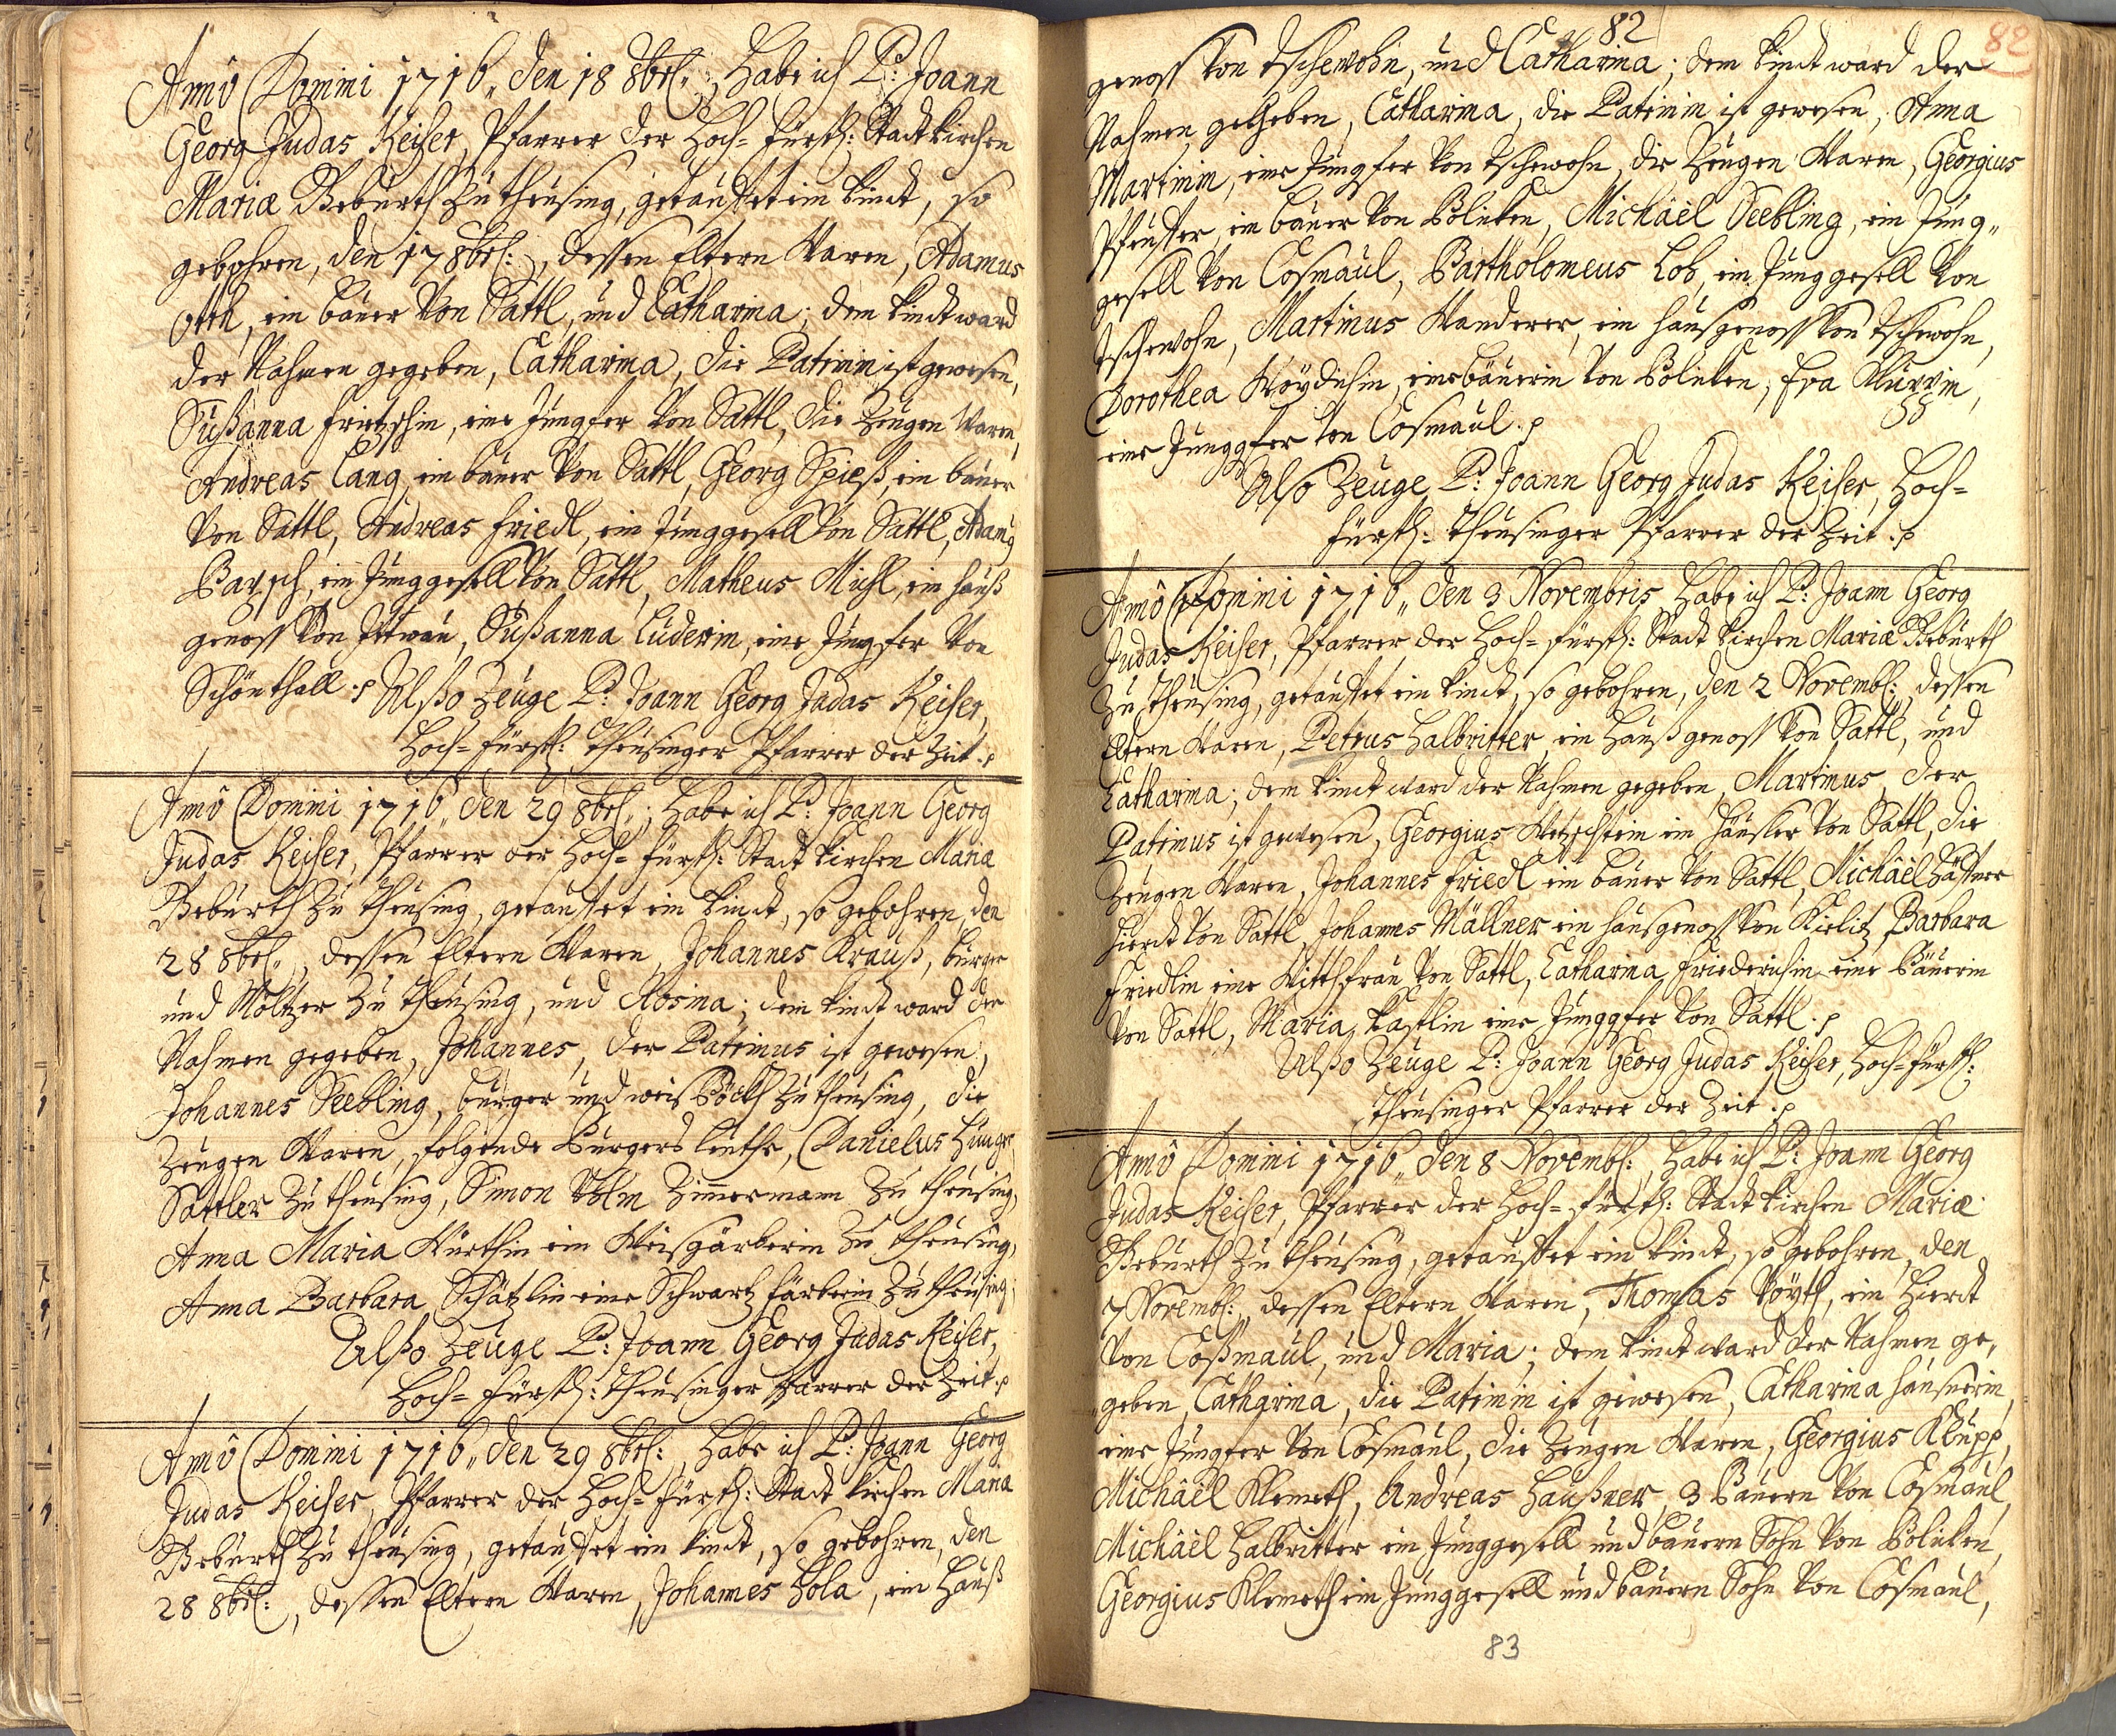 Annô Domini 1716„ den 18 8brl:, habe ich P: Joann
Georg Judas Keiser, Pfarrer der Hoch-Fürstl: Stadtkirchen
Mariæ Geburth zu theüsing, getauffet ein kindt, so
gebohren, den 17 8brl:, dessen Eltern Waren, Adamus
Otth, ein bauer Von Sattl, und Catharina; dem kindt ward
der Nahmen gegeben, Catharina, die Patrinin ist gewesen,
Sußanna Frietzschin, eine Jungfer Von Sattl, die Zeugen Waren,
Andreas Lang, ein bauer Von Sattl, Georg Spieß, ein bauer
Von Sattl, Andreas Friedl, ein Junggesell Von Sattl, Adamus
Barsch, ein Junggesell Von Sattl, Matheus Michl, ein hauß
genoss Von, Sußanna Luderin, eine Jungfer Von
Schönthall. Alßo Zeuge P: Joann Georg Judas Keiser,
Hoch-Fürstl: Theusinger Pfarrer der Zeit.
Annô Domini 1716„ den 29 8brl:, habe ich P: Joann Georg
Judas Keiser, Pfarrer der Hoch-Fürstl: Stadt kirchen Mariæ
Geburth zu theusing, getauffet ein kindt, so gebohren, den
28 8brl:, dessen Eltern Waren, Johannes Krauß, burger
und Möltzer zu theusing, und Rosina; dem kindt ward der
Nahmen gegeben, Johannes, der Patrinus ist gewesen,
Johannes Seebling, burger und weis Böckh zu theusing, die
Zeugen Waren, folgende Burgers leuthe, Danielus Hunger
Sattler zu theusing, Simon Zimmermann zu theusing,
Anna Maria Würthin ein Weisgärberin zu theusing,
Anna Barbara Schätzlin eine Schwartz färberin zu theusing,
Alßo Zeuge P: Joann Georg Judas Keiser,
Hoch-Fürstl: Theusinger Pfarrer der Zeit.
Annô Domini 1716„ den 29 8brl:, habe ich P: Joann Georg
Judas Keiser, Pfarrer der Hoch-Fürstl: Stadt kirchen Mariæ
Geburth zu theusing, getauffet ein kindt, so gebohren, den
28 8brl:, dessen Eltern Waren, Johannes Hola, ein Hauß
82
82
genoss Von Tschewohn, und Catharina; dem kindt ward der
Nahmen gegeben, Catharina, die Patrinin ist gewesen, Anna
Martinin, eine Jungfer Von Tschewohn, die Zeugen Waren, Georgius
ein bauer Von Bolicken, Michäel Seebling, ein Jung„
gesell Von Cosmaul, Bartholomeus Lob, ein Junggesell Von
Tschewohn, Martinus Wanderer, ein hausgenoss Von Tschewohn,
Dorothea eine bäuerin Von Bolicken, Eva
eine Junggfer Von Cosmaul.
Also Zeuge P: Joann Georg Judas Keiser, Hoch-
Fürstl: Theusinger Pfarrer der Zeit.
Annô Domini 1716„ den 3 Novembris, habe ich P: Joann Georg
Judas Keiser, Pfarrer der Hoch-Fürstl: Stadt kirchen Mariæ Geburth
zu theusing, getauffet ein kindt, so gebohren, den 2 Novembl:, dessen
Eltern Waren, Petrus Halbritter, ein Haußgenoss Von Sattl, und
Catharina; dem kindt ward der Nahmen gegeben, Martinus, der
Patrinus ist gewesen, Georgius Wetzstein ein Häusler Von Sattl, die
Zeugen Waren, Johannes Friedl ein bauer Von Sattl, Michäel
hierdt Von Sattl, Johannes Müllner ein hausgenoss Von Kielitz, Barbara
Friedlin eine Wittfrau Von Sattl, Catharina Friederichin eine Bäuerin
Von Sattl, Maria Kastlin eine Junggfer Von Sattl.
Alßo Zeuge P: Joann Georg Judas Keiser, Hoch-Fürstl:
Theusinger Pfarrer der Zeit.
Annô Domini 1716„ den 8 Novembl:, habe ich P: Joann Georg
Judas Keiser, Pfarrer der Hoch-Fürstl: Stadt kirchen Mariæ
Geburth zu theusing, getauffet ein kindt, so gebohren, den
7 Novembl:, dessen Eltern Waren, Thomas Vöyth, ein Hierdt
Von Coßmaul, und Maria; dem kindt ward der Nahmen ge,
geben, Catharina, die Patrinin ist gewesen, Catharina Hausnerin,
eine Jungfer Von Cosmaul, die Zeugen Waren, Georgius Klupp,
Michäel Klemeth, Andreas Haußner, 3 Bauern Von Cosmaul,
Michäel Halbritter ein Junggesell und bauern Sohn Von Bolicken,
Georgius Klemeth ein Junggesell und bauern Sohn Von Cosmaul,
83